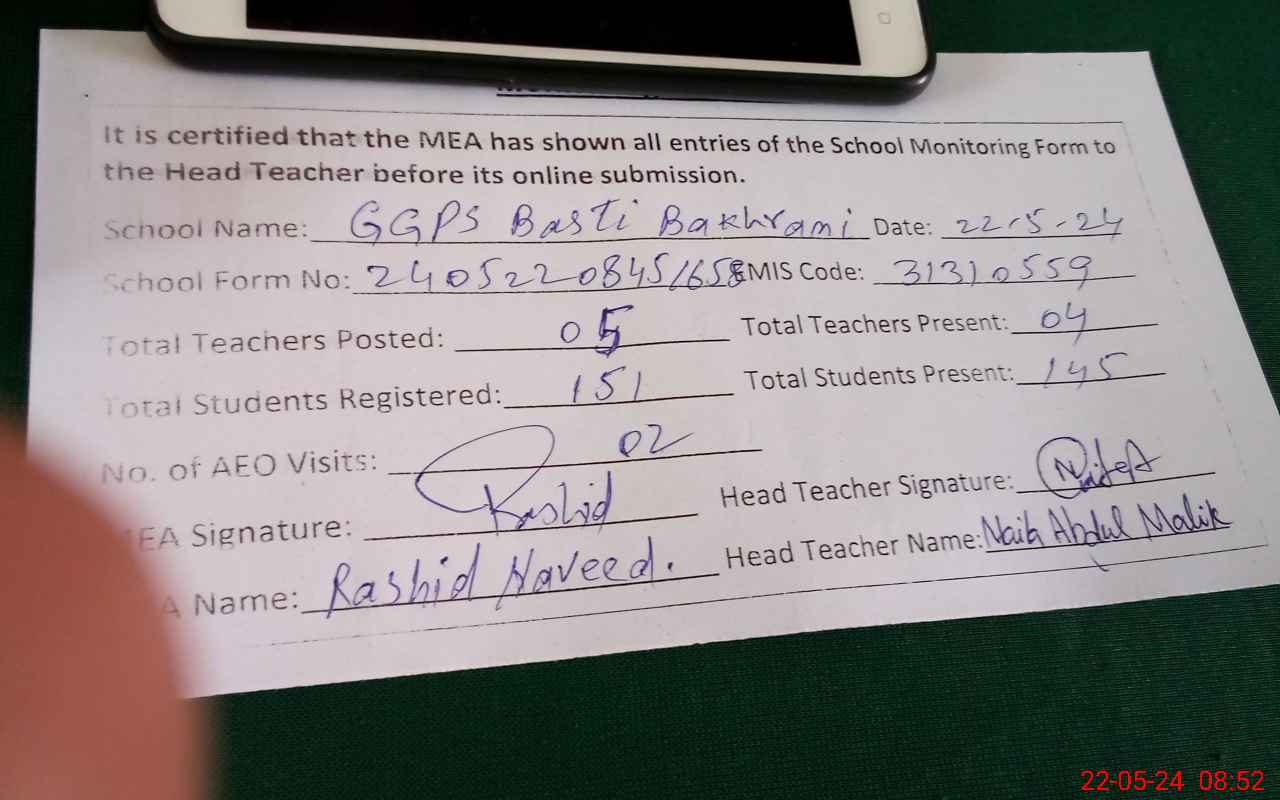 It is certified that the MEA has shown all entries of the School Monitoring Form to
the Head Teacher before its online submission.
School Name: GGPS Basti Bakhrami Date: 22-5-24
School Form No: 24052208451658 EMIS Code: 31310559
Total Teachers Posted: 05 Total Teachers Present: 04
Total Students Registered: 151 Total Students Present: 145
No. of AEO Visits: 02
EA Signature: Rashid Head Teacher Signature:
A Name: Rashid Naveed. Head Teacher Name: Naib Abdul Malik
22-05-24 08:52